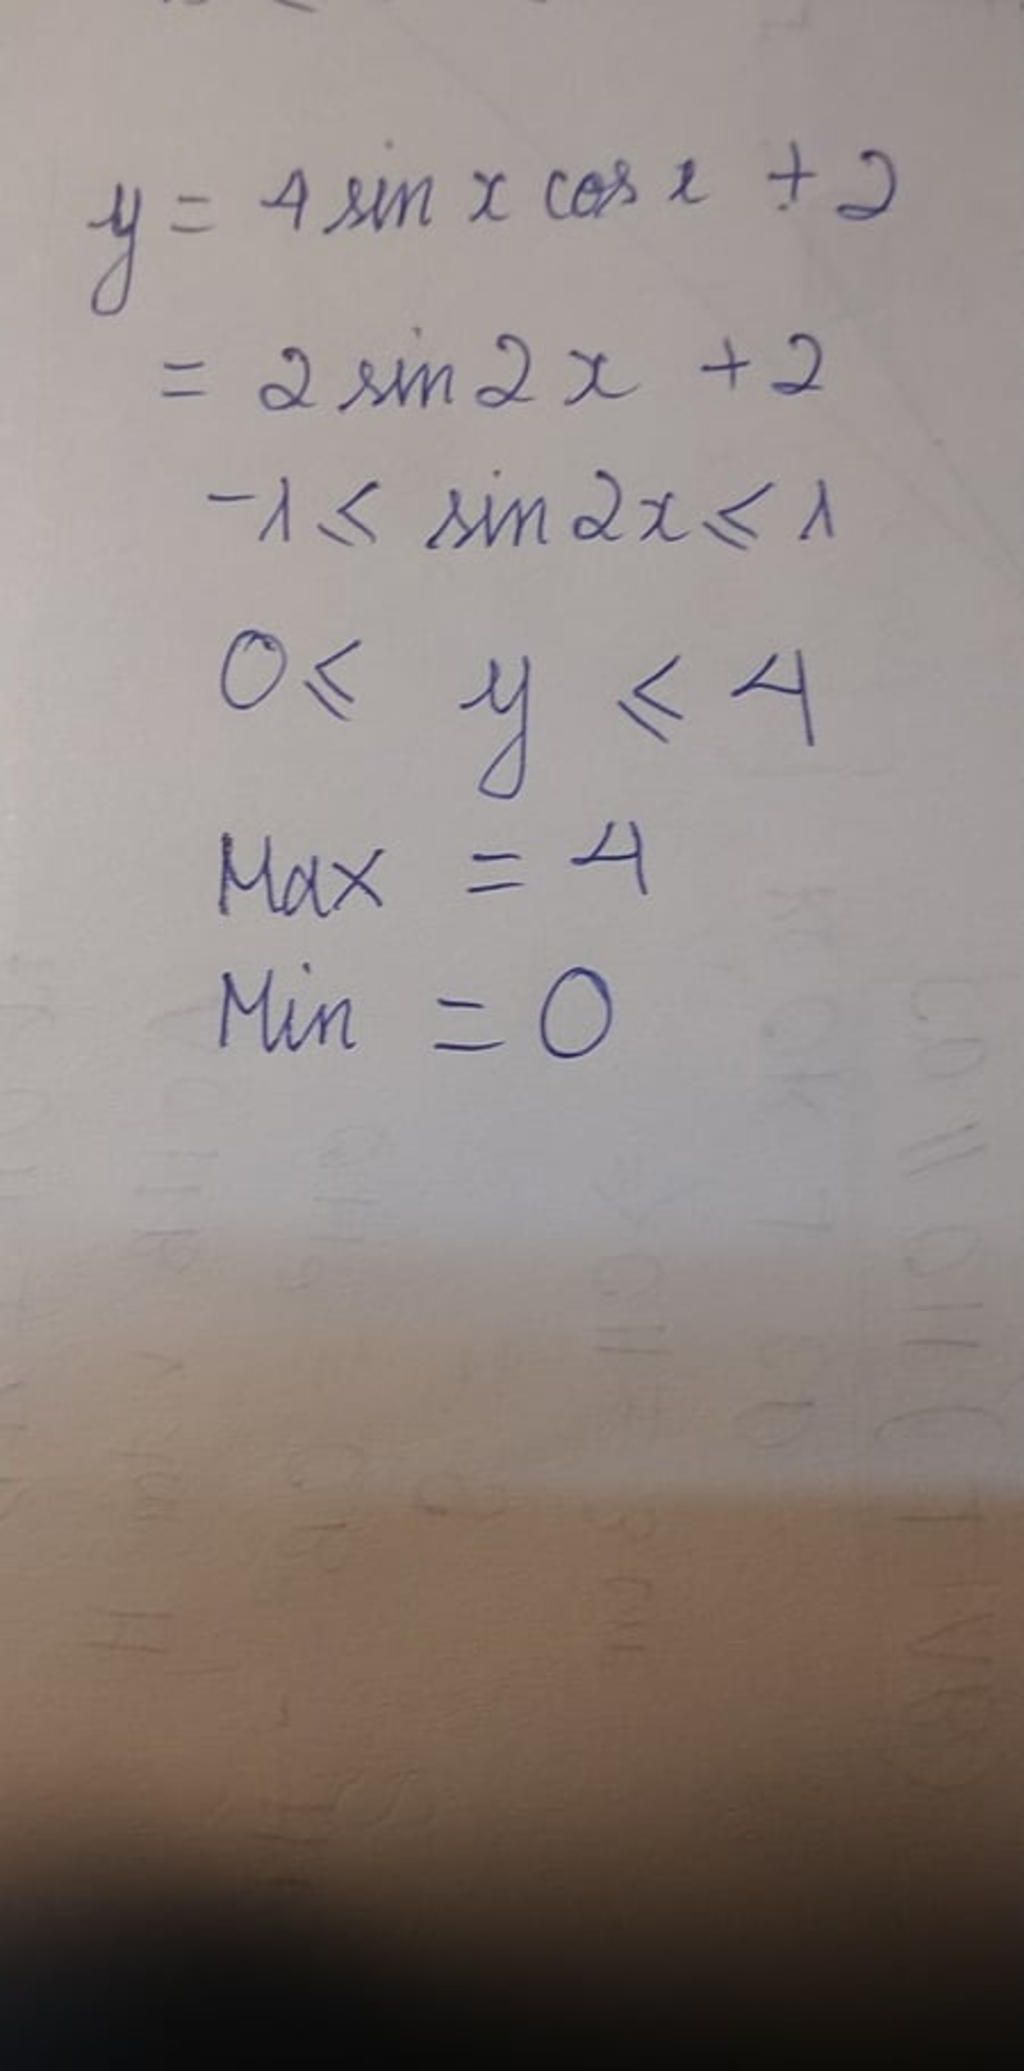 y = 4 sin x cos x + 2
= 2 sin 2x + 2
-1 ⩽ sin 2x ⩽ 1
0 ⩽ y ⩽ 4
Max = 4
Min = 0